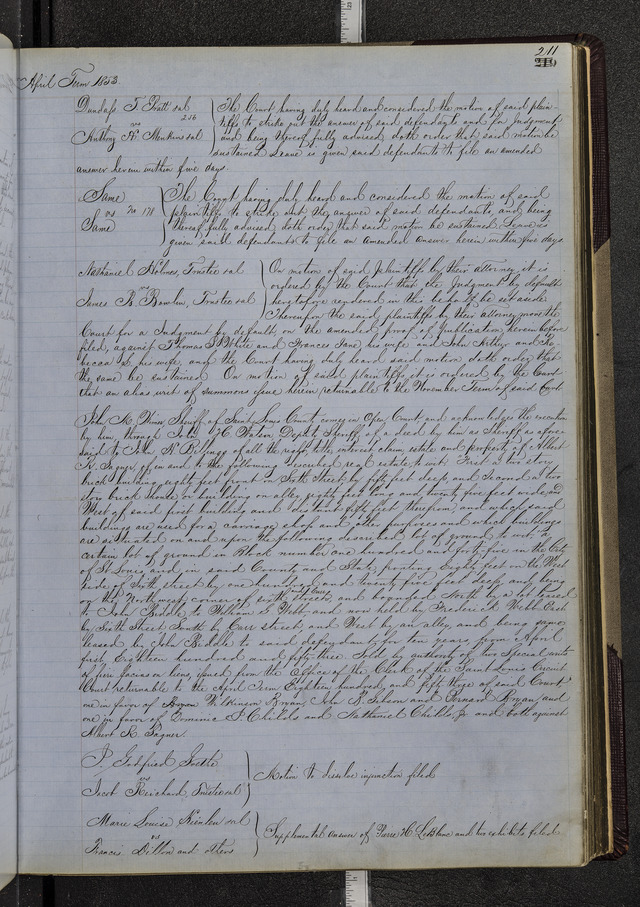 211
April Term 1853
Dundass T. Pratt et al
vs 256
Anthony W. Menkens et al
The Court having duly heard and considered the motion of said plain-
tiffs to strike out the answer of said defendants and for Judgment
and being thereof fully advised doth order that said motion be
sustained. Leave is given said defendants to file an amended
answer herein within five days
Same
vs No 171
Same
The Court having duly heard and considered the motion of said
plaintiffs to strike out the answer of said defendants, and being
thereof fully advised doth order that said motion be sustained. Leave is
given said defendants to file an amended answer herein within five days
Nathaniel Holmes, Trustee et al
vs
James B. Bowlin, Trustee et al
On motion of said plaintiff by their attorney it is
ordered by the Court that the Judgment by default
heretofore rendered in this behalf be set aside
Thereupon the said plaintiffs by their attorney move the
Court for a Judgment by default, on the amended proof of publication herein before
filed, against Thomas J. White and Frances Jane his wife and John Arthur and Re-
becca B. his wife, and the Court having duly heard said motion doth order that
the same be sustained. On motion of said plaintiffs it is ordered by the Court
that an alias writ of summons issue herein returnable to the November Term of said Court.
John M. Wimer, Sheriff of Saint Louis County comes in Open Court, and acknowledges the execution
by him, through John H. Watson Deputy Sheriff of a deed by him as Sheriff afore-
said to John N. Billings of all the right, title, interest claim, estate and property of Albert
K. Sagner, of in and to the following described real estate, to wit: First a two story
brick building, eighty feet front on Sixth Street by fifty feet deep and Second a two
story brick building on alley, eighty feet long and twenty five feet wide, and
West of said first building and distant fifty feet therefrom, and which said
buildings are used for a carriage shop and other purposes and which buildings
are situated on and upon the following described lot of ground to wit: A
certain lot of ground in Block number one hundred and forty-five in the City
of St Louis and in said County and State, fronting Eighty feet on the West
side of Sixth street by one hundred and twenty five feet deep and being
on the Northwest corner of sixth and Carr streets, and bounded North by a lot leased
to John Biddle to William G. Webb and now held by Frederick Webb East
by Sixth Street South by Carr street, and West by an alley, and being same
leased by John Biddle to said defendant for ten years from April
first Eighteen hundred and fifty-three. Sold by authority of two Special writs
of fieri facias on liens, issued from the Office of the Clerk of the Saint Louis Circuit
Court returnable to the April Term Eighteen hundred and fifty three of said Court
one in favor of Wilkinson Bryan, John S. and Bernard Bryan and
one in favor of Dominic S. Childs and Nathaniel Childs Jr and both against
Albert K. Sagner.
J. Gottfried
vs
Jacob Reichard, Trustee et al
Motion to dissolve injunction filed
Marie Louise et al
vs
Francis Dillon and others
Supplemental answer of Pierre H. LeBlanc and two exhibits filed